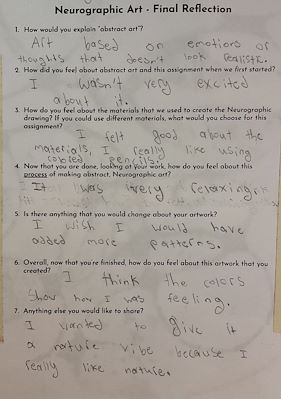 Neurographic Art - Final Reflection
1. How would you explain 'abstract art'?
Art based on emotions or
thoughts that doesn't look realistic.
2. How did you feel about abstract art and this assignment when we first started?
I wasn't very excited
about it.
3. How do you feel about the materials that we used to create the Neurographic
drawing? If you could use different materials, what would you choose for this
assignment?
I felt good about the
materials, I really like using
colored pencils.
4. Now that you are done, looking at your work, how do you feel about this
process of making abstract, Neurographic art?
It was very relaxing
5. Is there anything that you would change about your artwork?
I wish I would have
added more patterns.
6. Overall, now that you're finished, how do you feel about this artwork that you
created?
I think the colors
show how I was feeling.
7. Anything else you would like to share?
I wanted to give it
a nature vibe because I
really like nature.